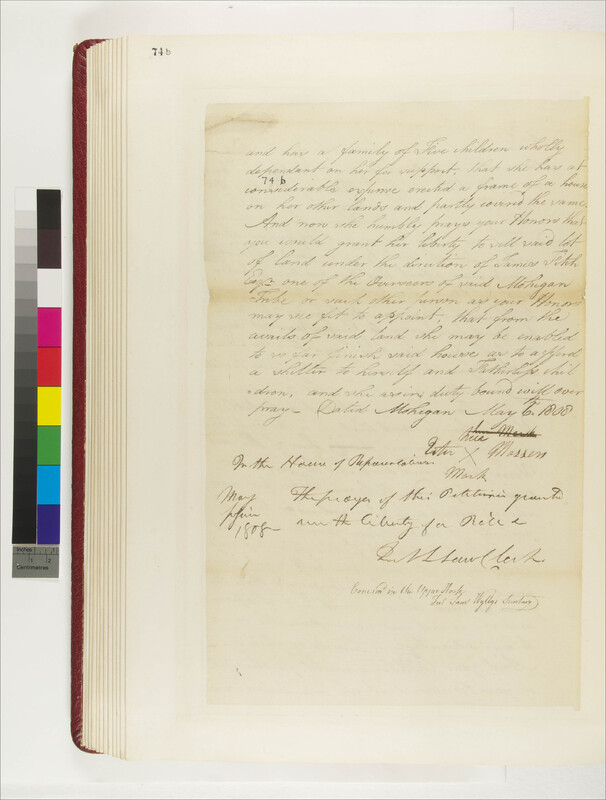 74 b
and has a family of Five children wholly
dependant on her for support, that she has at
74 b
considerable expense erected a frame of a house
on her other lands and partly coverd the same
And now she humbly prays your Honors that
you would grant her liberty to sell said lot
of land under the direction of James Fitch
Esqr. one of the Overseers of said Mohegan
Tribe or such other person as your Honors
may see fit to appoint, that from the
avails of said land she may be enabled
to so far finish said house as to afford
a shelter to himself and Fatherless chil
-dren, and she as in duty bound will ever
pray - Dated Mohegan May 6. 1808
her Mark
her
Ester X Mossen
Mark
In the House of Representatives
May
1808
The prayer of this Petition is granted
with liberty for Bill &
Law Clerk
Concurd in the Upper House
Test Saml Wyllys Secretary
Inches
1
2
Centimetres